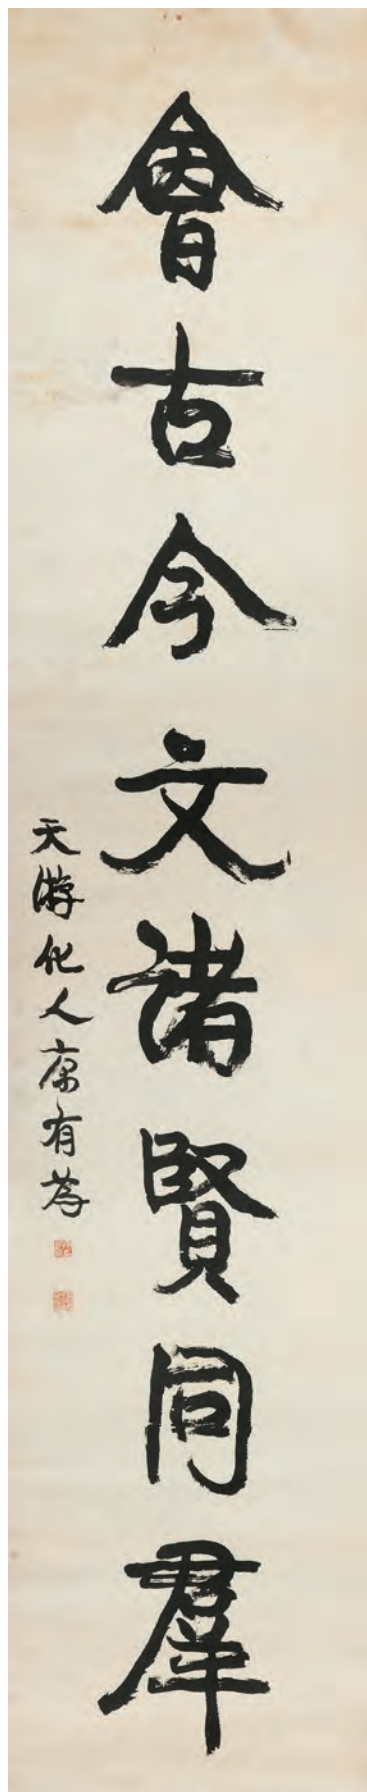 會古今文諸賢同羣
天游化人康有為